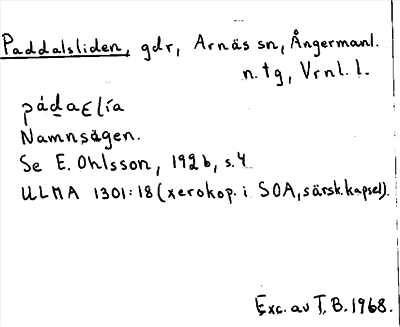 Paddalsliden, gdr, Arnäs sn, Ångermanl.
n. tg, Vrnl. l.
pádaɛlía
Namnsägen.
Se E. Ohlsson, 1926, s. 4
ULMA 1301:18 (xerokop. i SOA, särsk. kapsel).
Exc. av T. B. 1968.